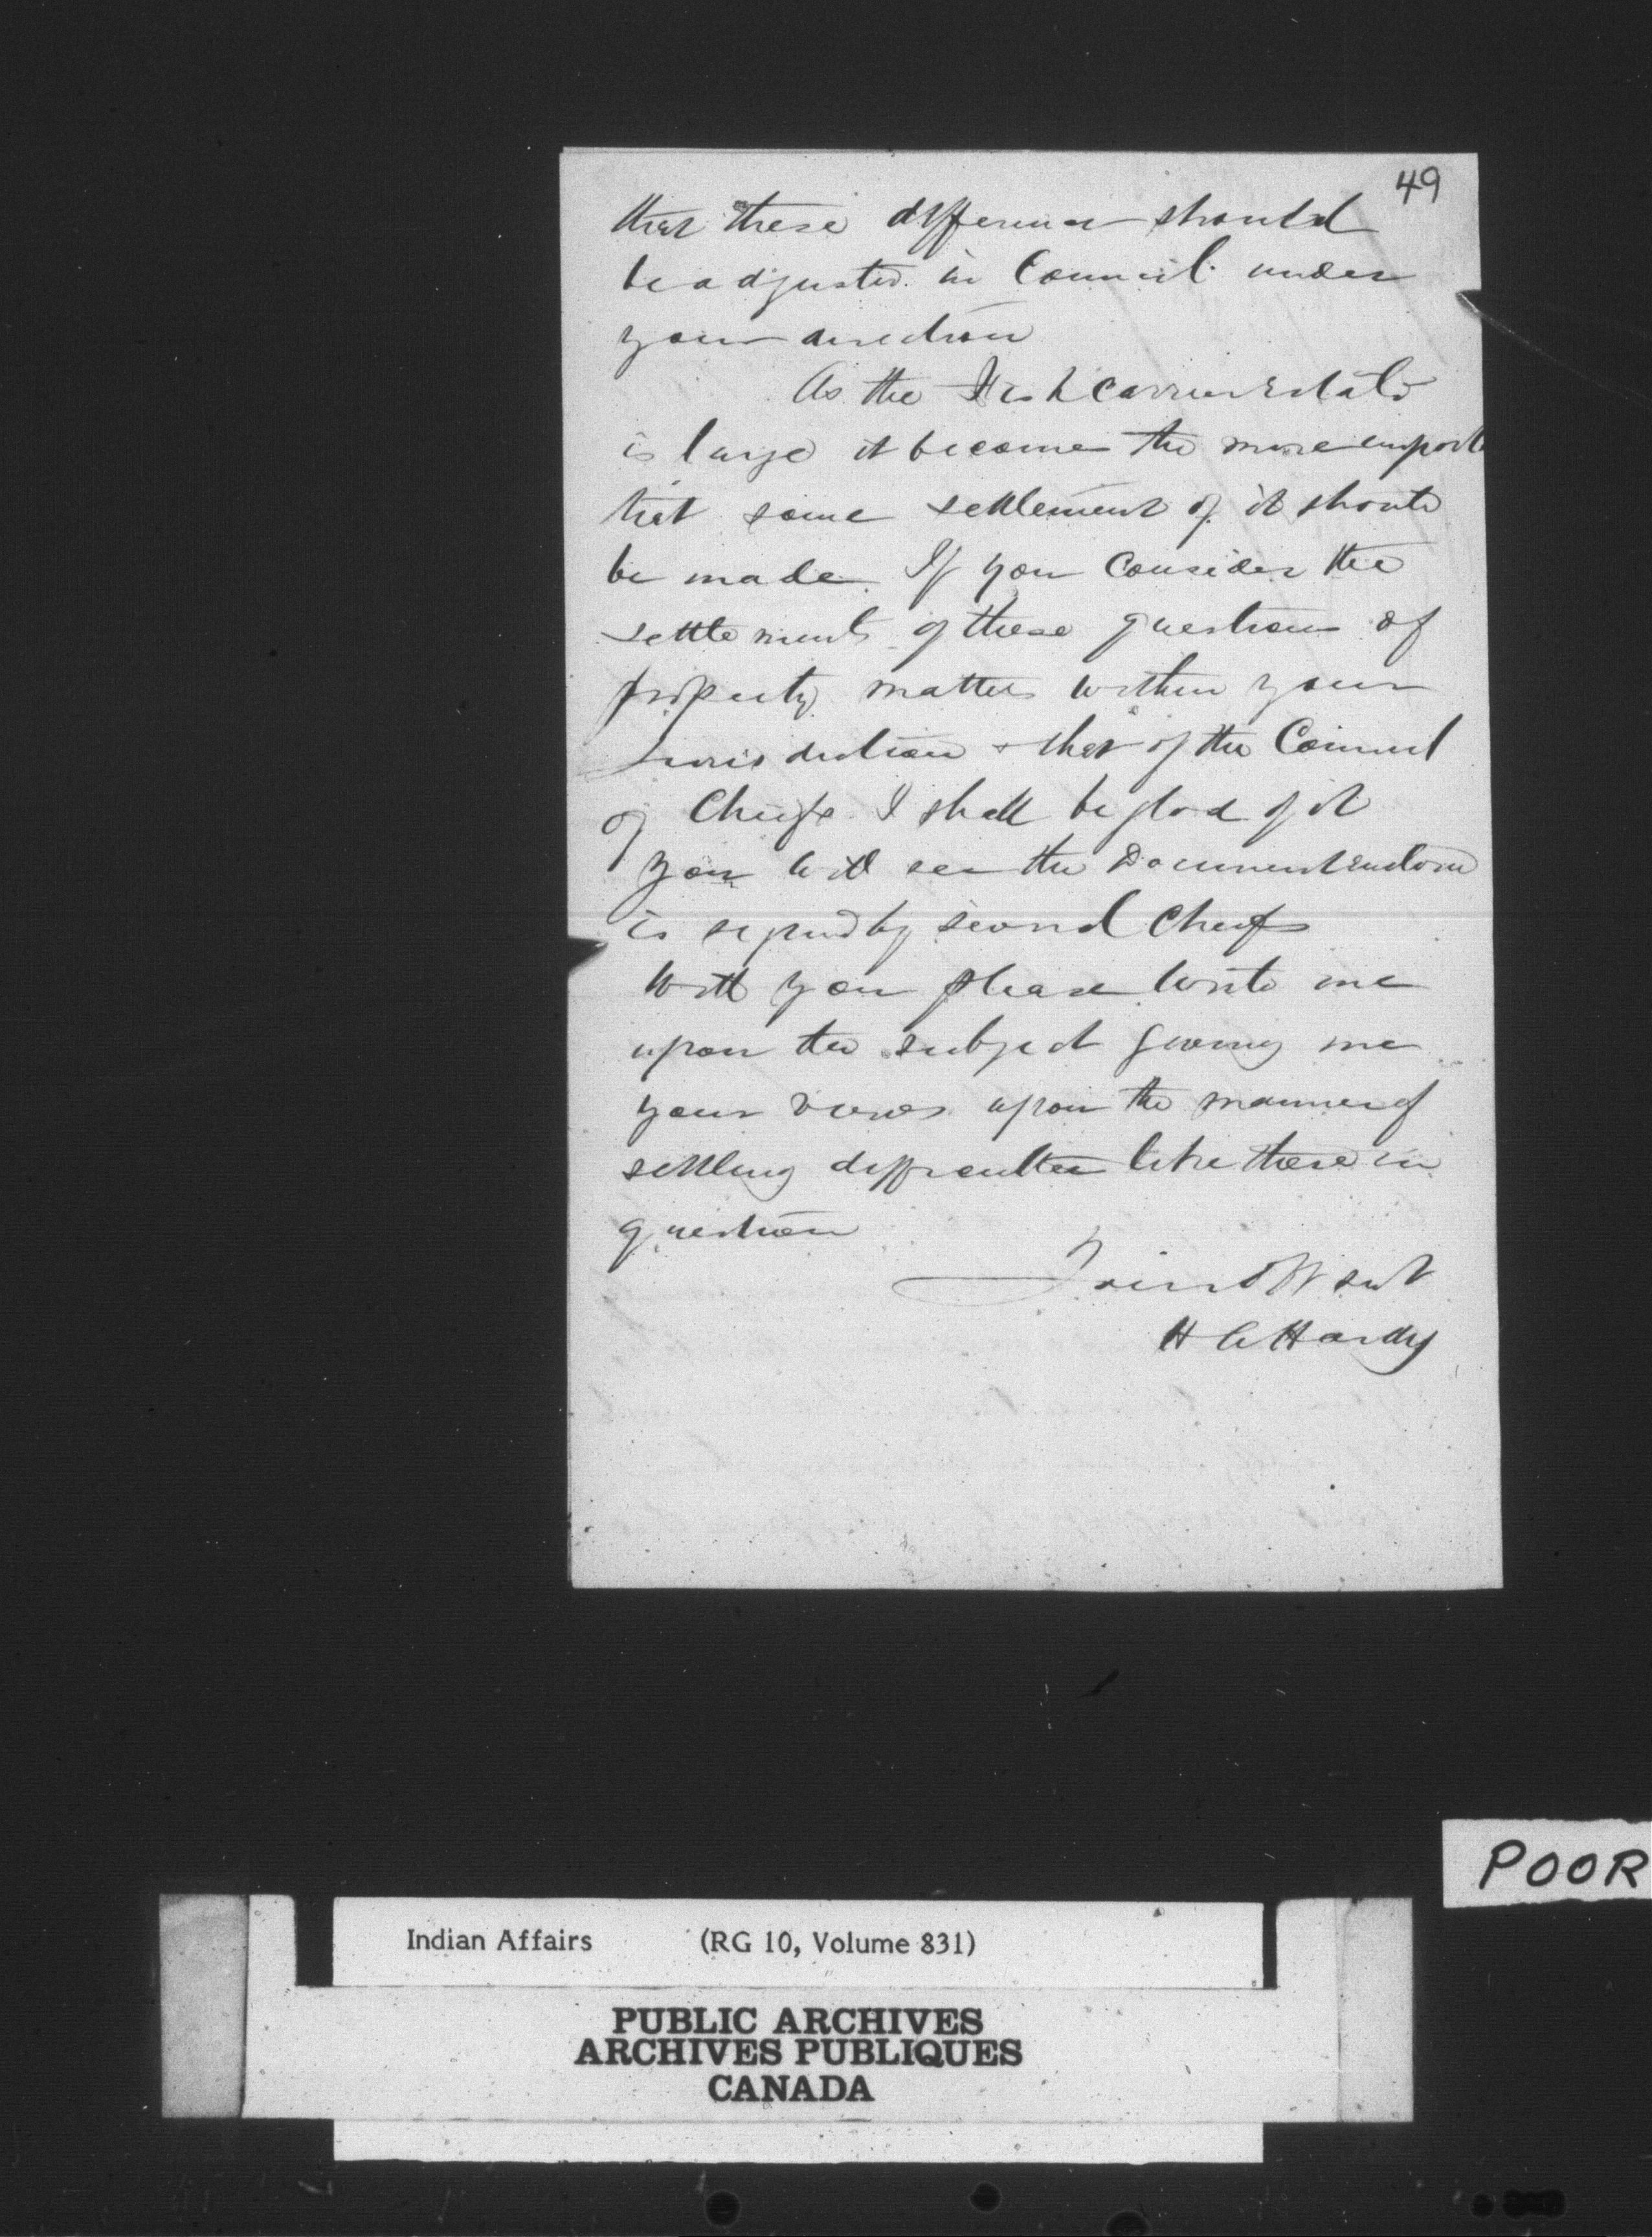 49
that these differences should
be adjusted in Council under
your direction
As the Fish Carrier Estate
is large it becomes the more import
that some settlement of it should
be made. If you consider the
settlements of these questions of
property matters within your
Jurisdiction & that of the Council
of Chiefs I shall be glad of it
you will see the Document enclosed
is signed by several Chiefs
Will you please write me
upon the subject giving me
your views upon the manner of
settling difficulties like those in
question
Yours
H C Hardy
POOR
Indian Affairs (RG 10, Volume 831)
PUBLIC ARCHIVES
ARCHIVES PUBLIQUES
CANADA